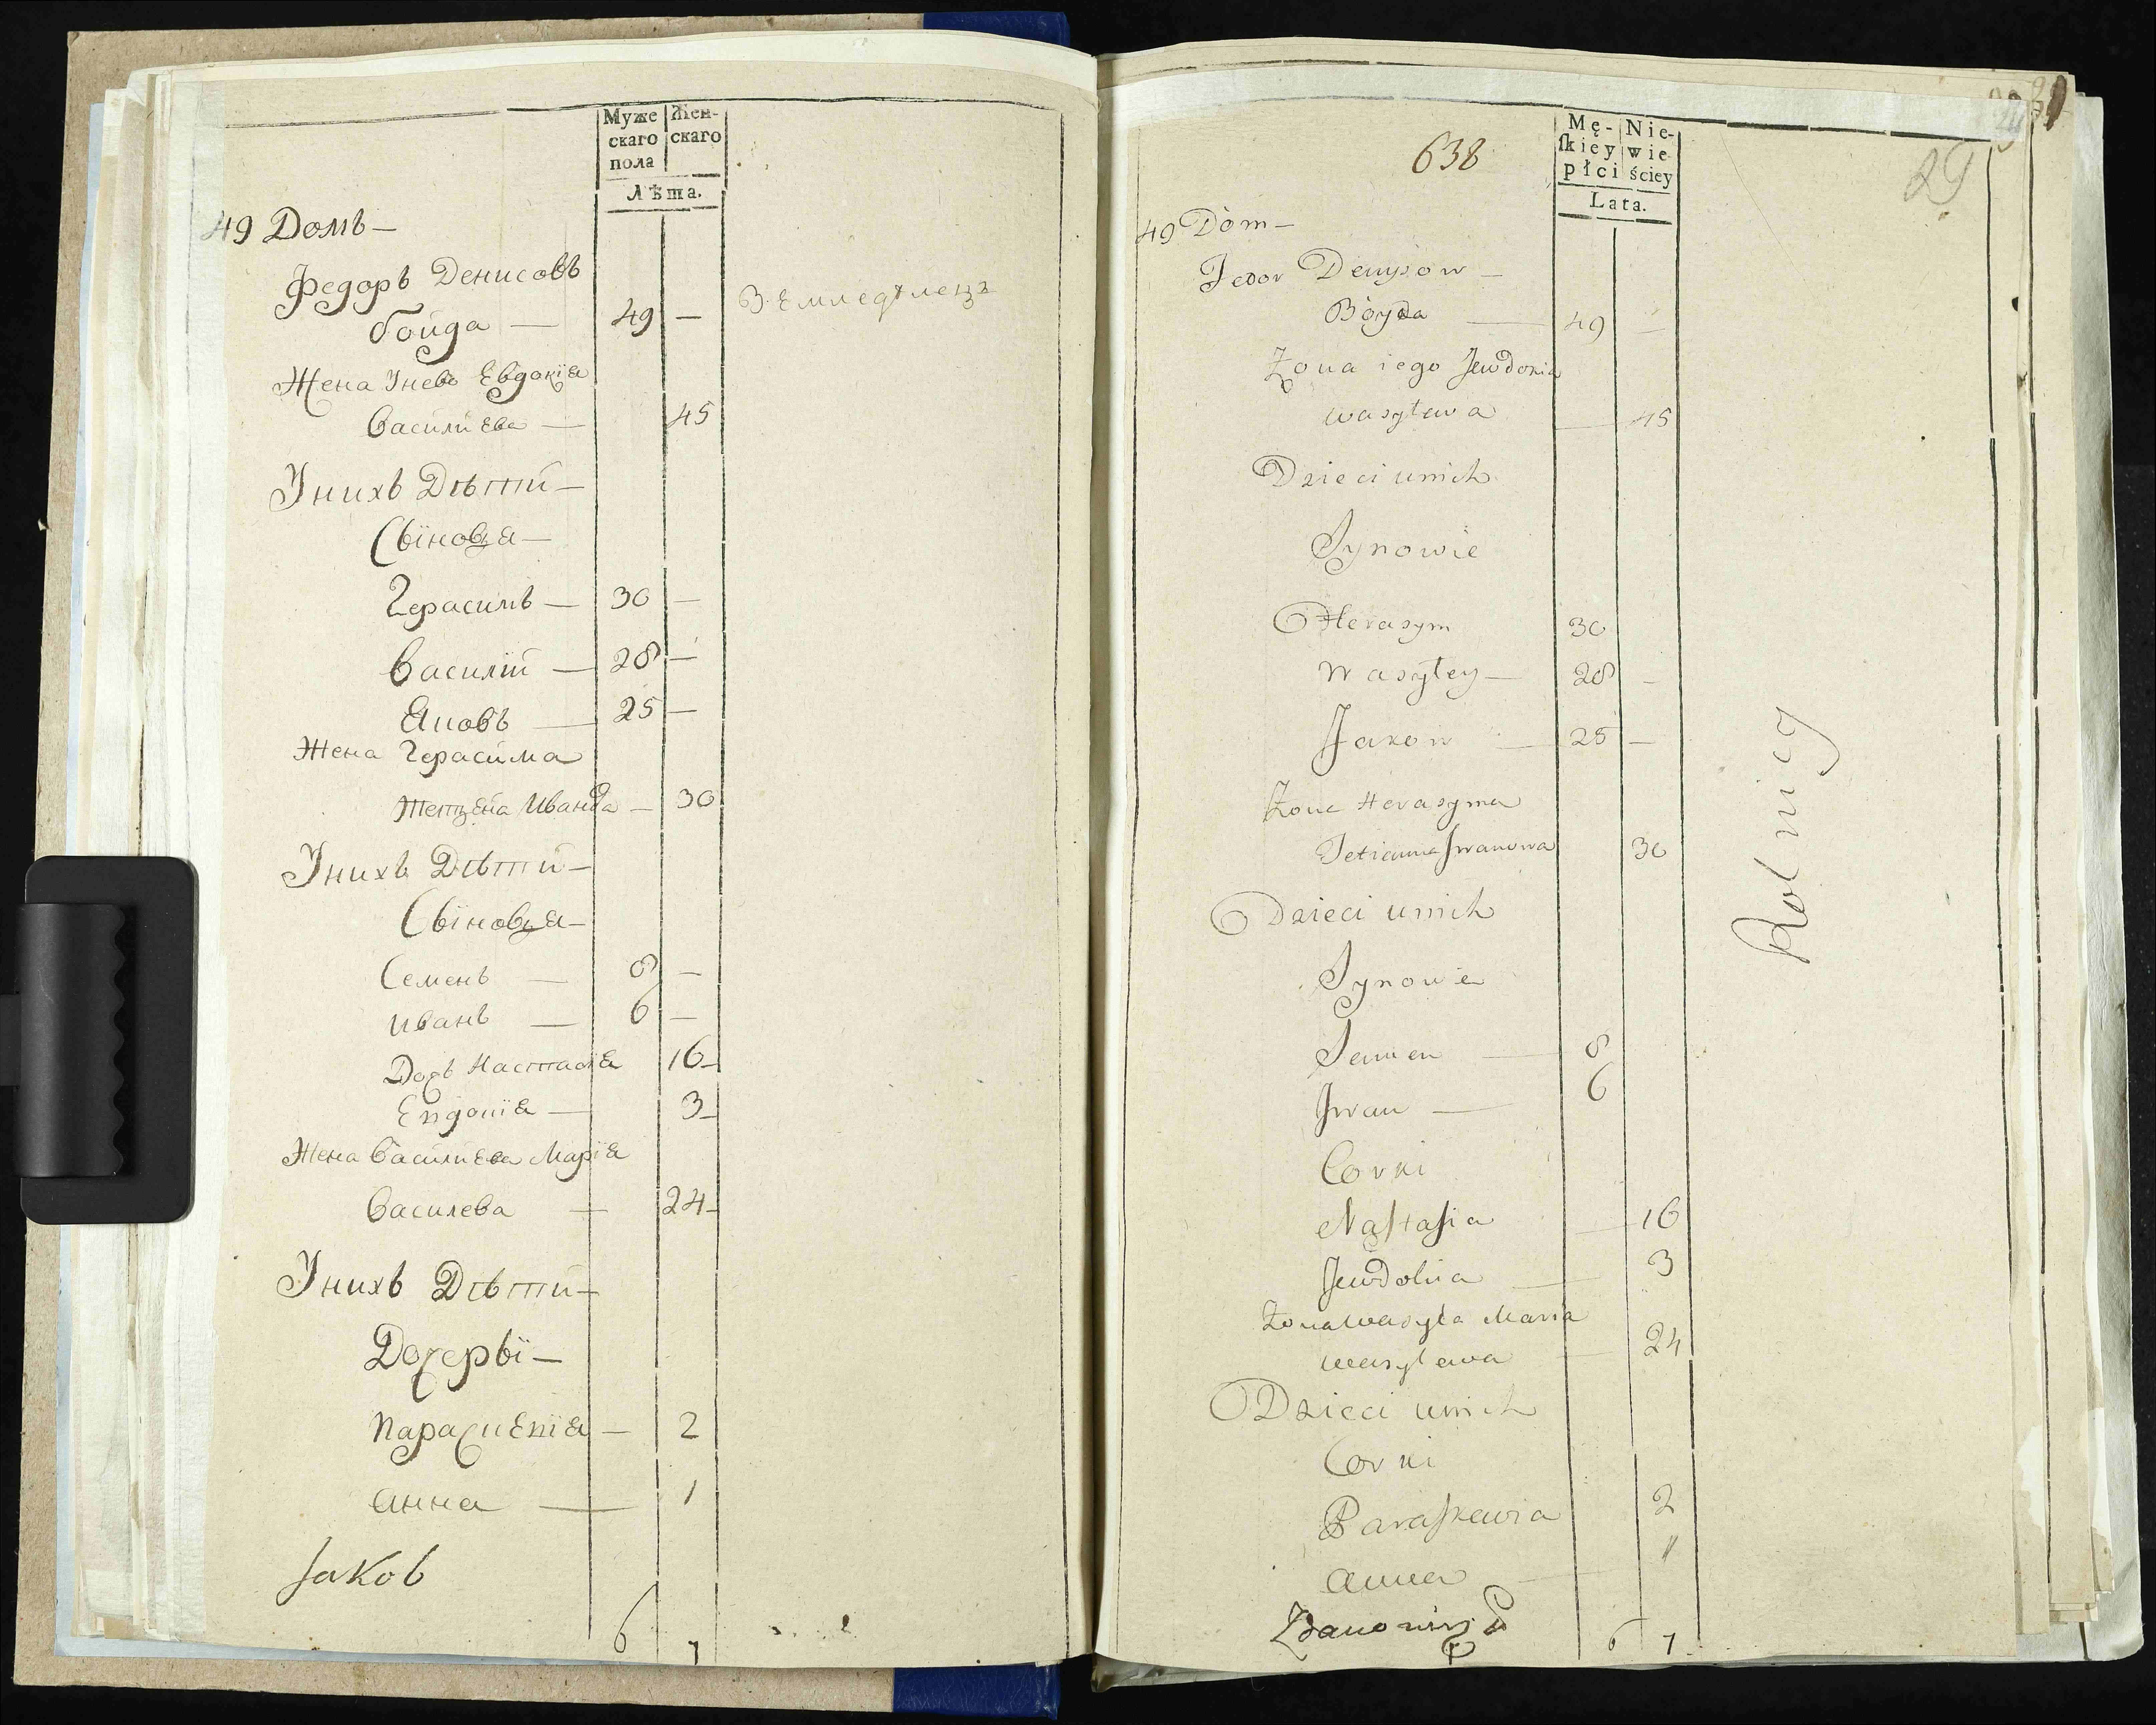 Муже
скаго
пола
Жен-
скаго
Лѣта.
49 Домъ —
Федоръ Денисовъ
бойда — 49 — Земледѣлецъ
Жена Унево Евдокїя
Василїева — 45
Унихъ Дѣти —
Сыновья —
Герасимъ — 30 —
Василій — 28 —
Яковъ — 25 —
Жена Герасима
Тетяна Иванова — 30
Унихъ Дѣти —
Сыновья —
Семенъ — 8 —
Иванъ — 6 —
Дочь Настасія 16
Евдокїя — 3
Жена Василиева Марїя
Василева — 24
Унихъ Дѣти —
Дочеры —
Параскевїя — 2
Анна — 1
Jаков
6 7
638
29
Mę-
ſkiey
płci
Nie-
wie
ściey
Lata.
49 Dom —
Fedor Denysow —
Boyda — 49 —
Żona iego Jewdokia
wasylewa — 45
Dzieci unich
Synowie
Herasym 30
Wasyley — 28 —
Jakow — 25 —
Żona Herasyma
Tetianna Jwanowa 30
Dzieci unich
Synowie
Semen — 8
Jwan — 6
Corki
Naſtaſia — 16
Jewdokia — 3
Żona Wasyla Maria
wasylewa — 24
Dzieci unich
Corki
Paraſkewia 2
Anna — 1
6 7
Rolnicy